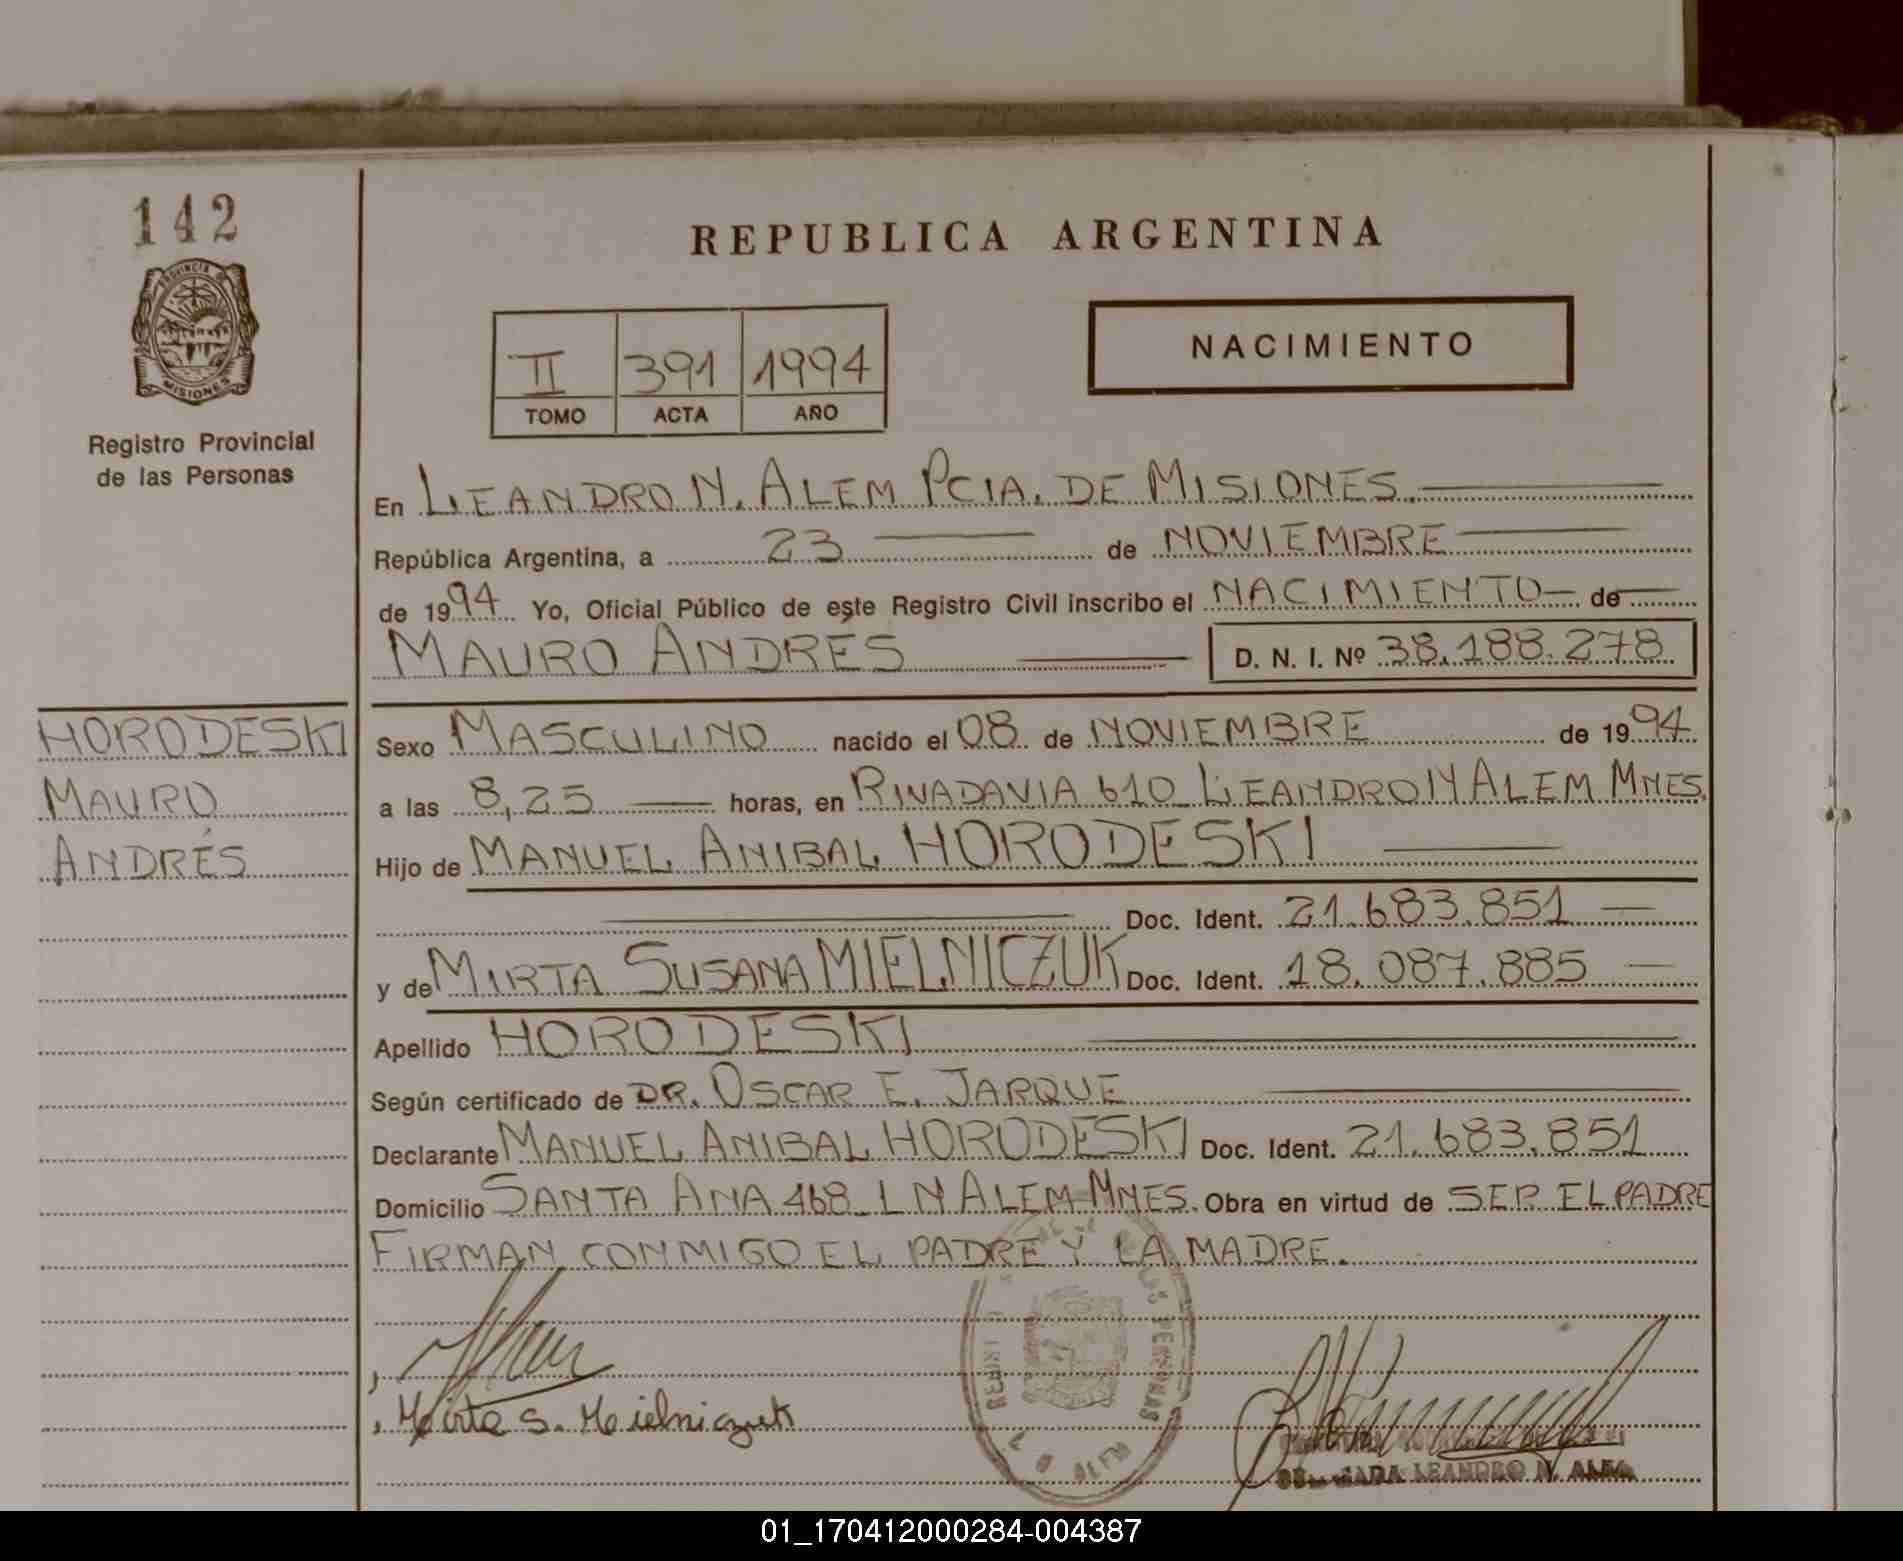 142
PROVINCIA DE
MISIONES
Registro Provincial
de las Personas
REPUBLICA ARGENTINA
II 391 1994
TOMO ACTA AÑO
NACIMIENTO
En LEANDRO N. ALEM PCIA. DE MISIONES.
República Argentina, a 23 de NOVIEMBRE
de 1994 Yo, Oficial Público de este Registro Civil inscribo el NACIMIENTO de
MAURO ANDRÉS D. N. I. Nº 38.188.278
HORODESKI
MAURO
ANDRÉS
Sexo MASCULINO nacido el 08 de NOVIEMBRE de 1994
a las 8,25 horas, en RIVADAVIA 610 LEANDRO N ALEM MNES.
Hijo de MANUEL ANIBAL HORODESKI
Doc. Ident. 21.683.851
y de MIRTA SUSANA MIELNICZUK Doc. Ident. 18.087.885
Apellido HORODESKI
Según certificado de DR. OSCAR E. JARQUE
Declarante MANUEL ANIBAL HORODESKI Doc. Ident. 21.683.851
Domicilio SANTA ANA 468 L N ALEM-MNES. Obra en virtud de SER EL PADRE
FIRMAN CONMIGO EL PADRE Y LA MADRE.
Mirta S. Mielniczuk
LEANDRO N. ALEM
PERSONAS
ALEM
01_170412000284-004387